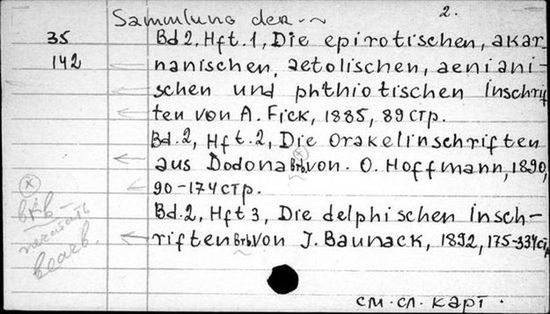 Sammlung der ~ 2.
35 Bd 2, Hft. 1, Die epirotischen, akar-
142 nanischen, aetolischen, aeniani-
schen und phthiotischen Inschrif-
ten von A. Fick, 1885, 89 стр.
Bd. 2, Hft. 2, Die Orakelinschriften
aus Dodona von. O. Hoffmann, 1890,
90-174 стр.
Bd. 2, Hft 3, Die delphischen Insch-
riften von J. Baunack, 1892, 175-334 стр
см. сл. карт.